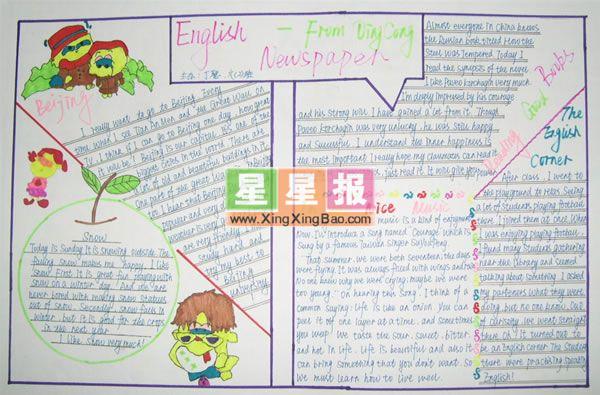 English
- From Ding Cong
Newspaper
Beijing
I really want to go to Beijing. Every
time when I see Tian An Men and the Great Wall on
TV. I think if I can go to Beijing one day, how great
it will be! Beijing is our capital. It's one of the
biggest cities in the world. There are
a lot of old and beautiful buildings in it.
One part of the great
I hear that Beijing
are very friendly. I
study hard and
try my best to
Beijing
university.
Snow
Today is Sunday. It is snowing outside. The
falling snow makes me happy. I like
snow. First, it is great fun playing with
snow on a winter day. And we are
never bored with making snow statues
out of snow. Secondly, snow falls in
winter, but it is good for the crops
in the next year.
I like snow very much!
Almost everyone in China knows
the Russian book titled How the
Steel Was Tempered. Today I
read the synopsis of the novel.
I like Paveo Korchagin very much.
I'm deeply impressed by his courage
and his strong will. I have gained a lot from it. Though
Paveo Korchagin was very unlucky, he was still happy
and successful. I understand the inner happiness is
the most important. I really hope my classmates can read it
just read it. It will give you power
Reading Good Books
星星报
www.XingXingBao.com
Nice Music
music is a kind of enjoyment.
Now, I'll introduce a song named Courage, which is
sung by a famous Taiwan singer
That summer, we were both seventeen, the days
were flying. It was always fried with wings and
No one knew why we were crying, maybe we were
too young." On hearing this song, I think of a
common saying: Life is like an onion. You can
peel it off one layer at a time, and sometimes
you weep. We taste the sour, sweet, bitter
and hot in life. Life is beautiful and also it
can bring something that you don't want. So
we must learn how to live well.
The
English
Corner
After class, I went to
the playground to relax. Seeing
a lot of students playing football
there, I joined them at once. When
I was enjoying playing football,
I found many students gathering
near the library and seemed
talking about something. I asked
my partners what they were
doing, but no one knew. Out
of curiosity, we went straight
there. Oh! It turned out to
be an English corner. The students
there were practising speaking
English!